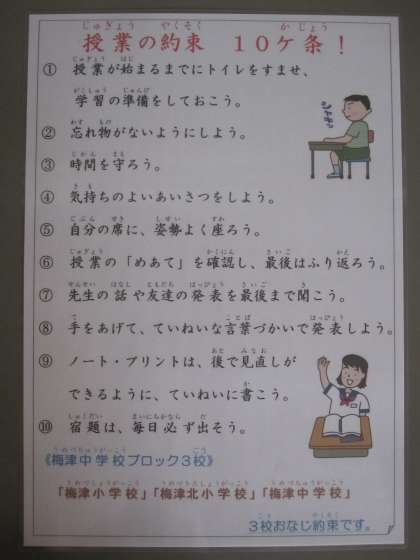 授業の約束 10ケ条!
① 授業が始まるまでにトイレをすませ、
学習の準備をしておこう。
② 忘れ物がないようにしよう。
③ 時間を守ろう。
④ 気持ちのよいあいさつをしよう。
⑤ 自分の席に、姿勢よく座ろう。
⑥ 授業の「めあて」を確認し、最後はふり返ろう。
⑦ 先生の話や友達の発表を最後まで聞こう。
⑧ 手をあげて、ていねいな言葉づかいで発表しよう。
⑨ ノート・プリントは、後で見直しが
できるように、ていねいに書こう。
⑩ 宿題は、毎日必ず出そう。
《梅津中学校ブロック3校》
「梅津小学校」「梅津北小学校」「梅津中学校」
3校おなじ約束です。
シャキッ